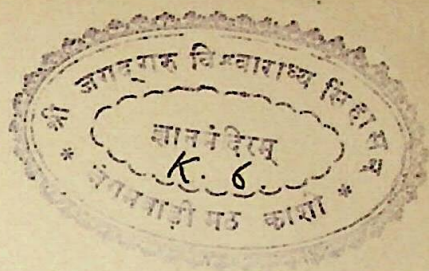 श्री जगद्गुरु विश्वाराध्य सिंहासन
ज्ञानमंदिरम्
K. 6
* जंगमवाड़ी मठ काशी *